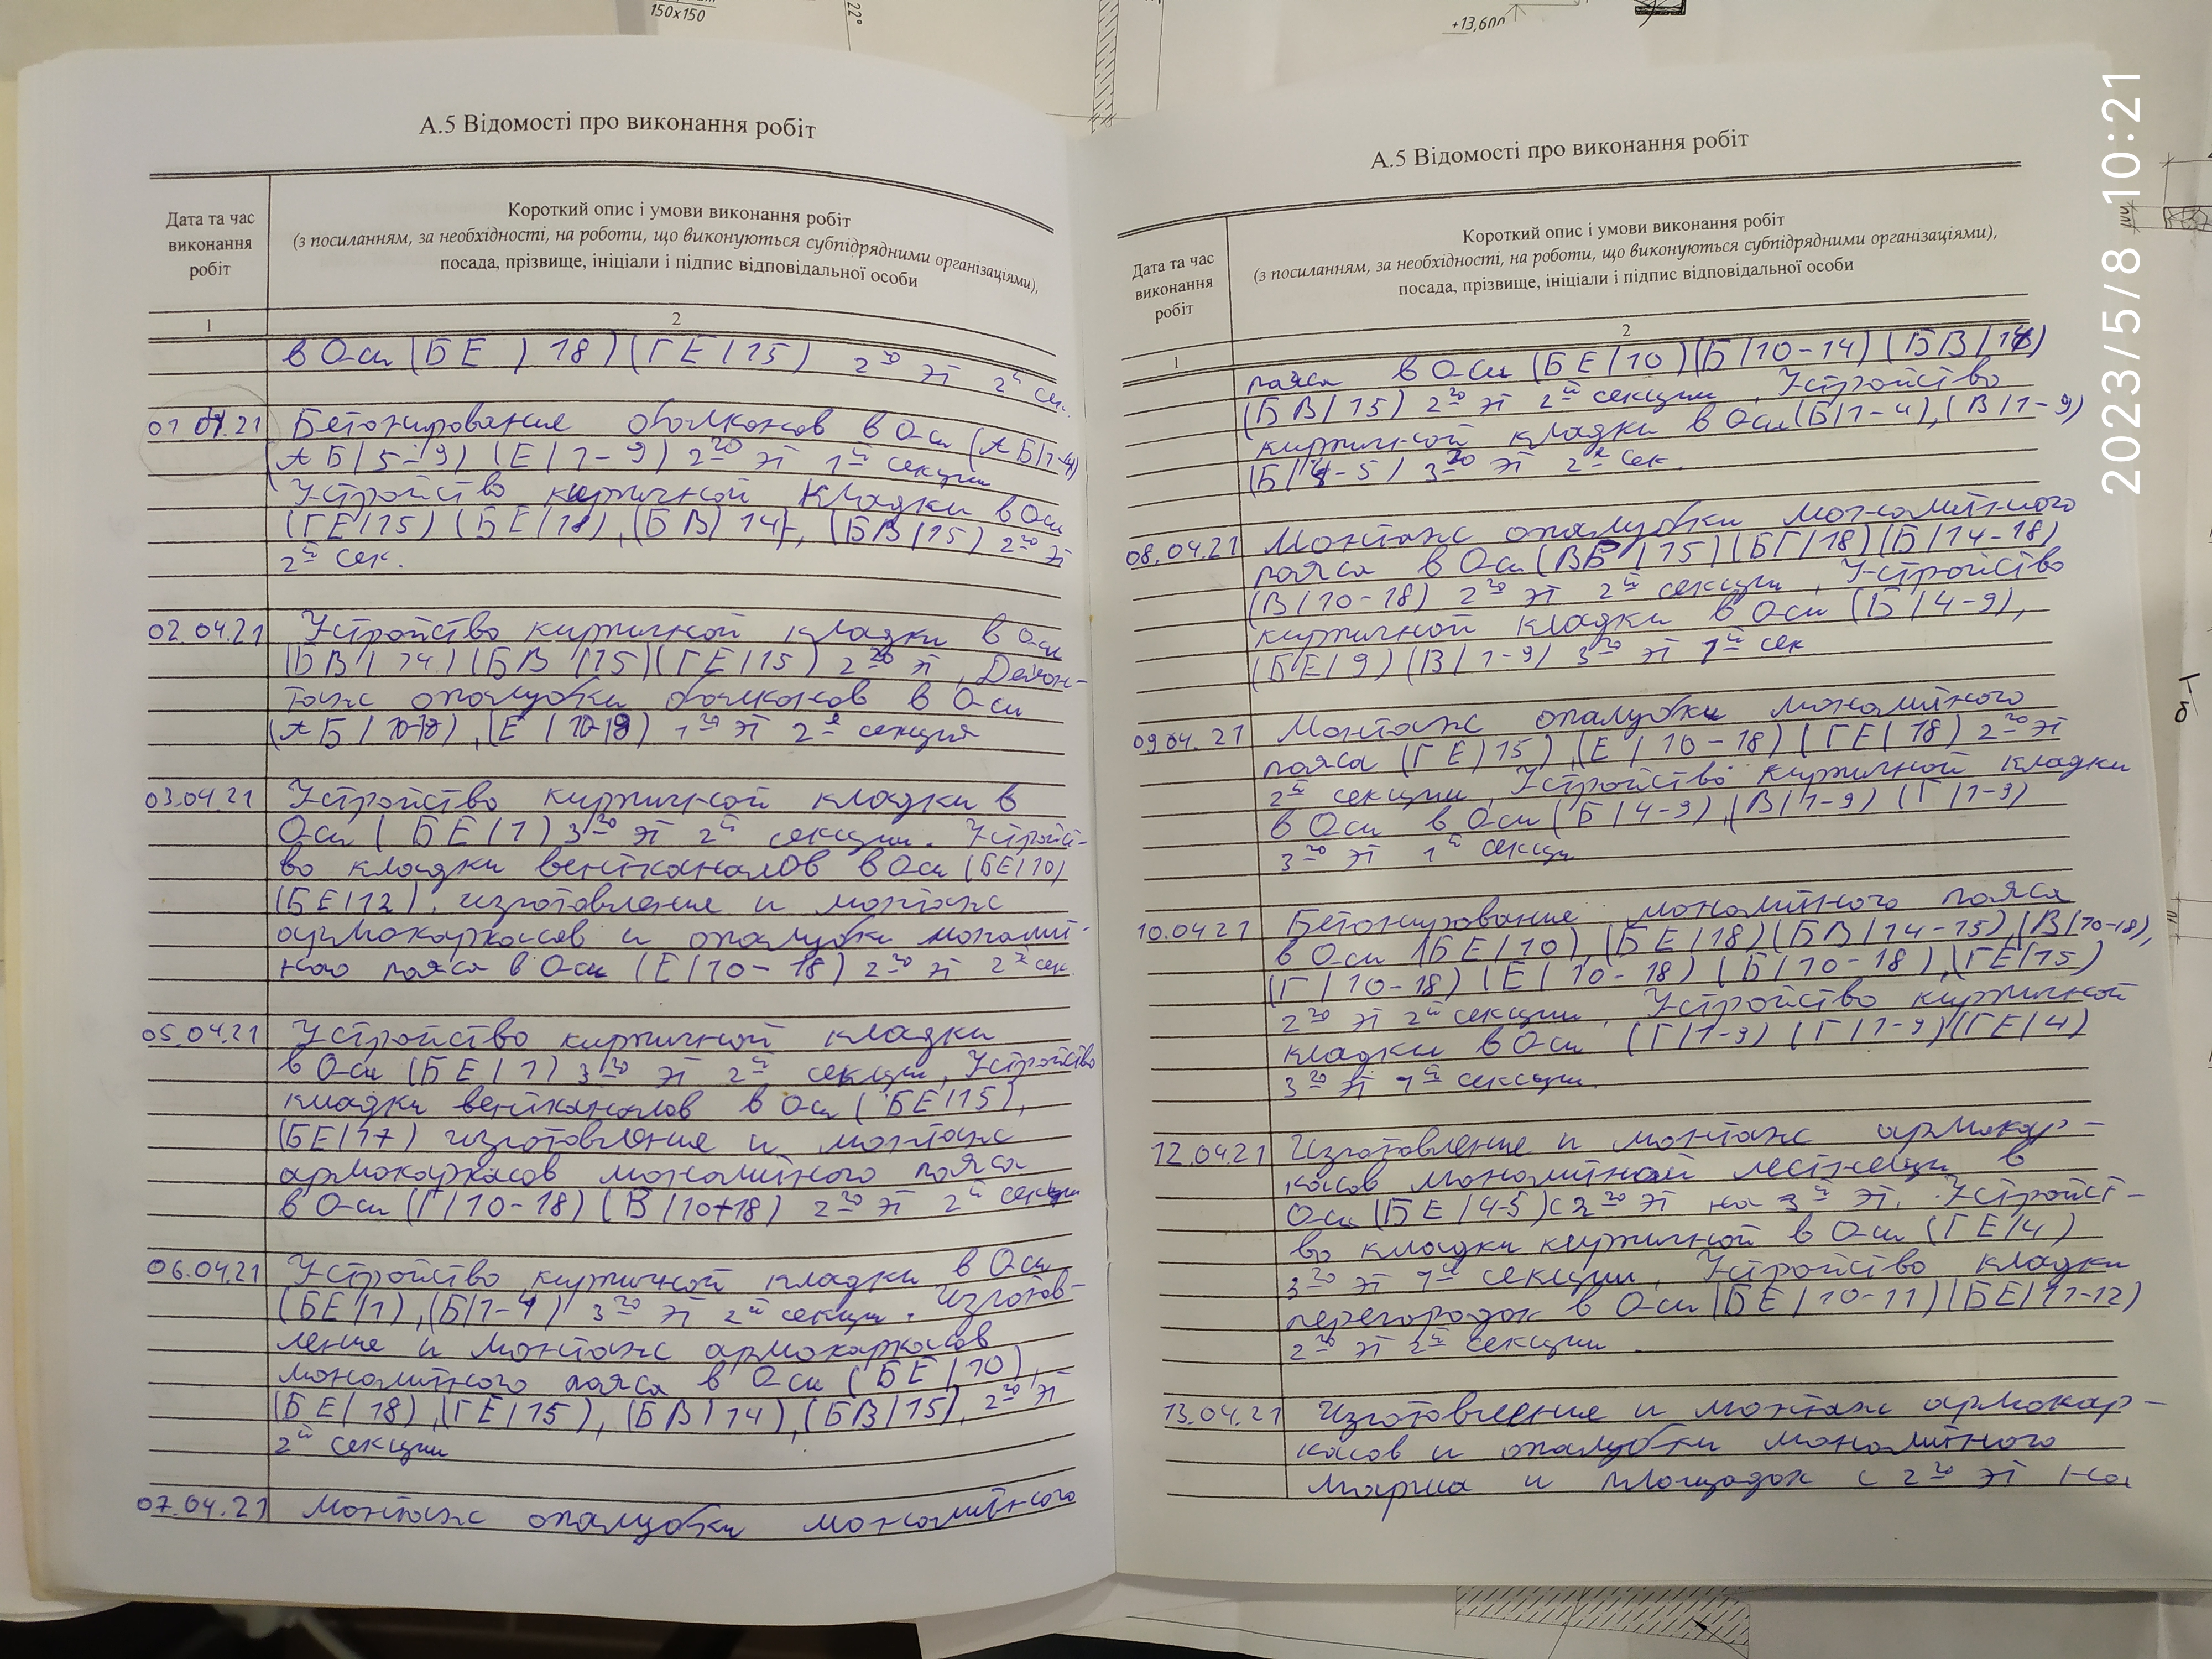 150x150
22°
+13,600
2023/5/8 10:21
А.5 Відомості про виконання робіт
Дата та час виконання робіт
Короткий опис і умови виконання робіт
(з посиланням, за необхідності, на роботи, що виконуються субпідрядними організаціями),
посада, прізвище, ініціали і підпис відповідальної особи
1 2
в Оси (БЕ / 18) (ГЕ/15) 2го эт 2й сек.
01.04.21 Бетонирование балконов в Оси (АБ/1-4)
АБ/5-9) (Е/1-9) 2го эт 1й секции
Устройство кирпичной кладки в Оси
(ГЕ/15) (БЕ/18), (БВ/14), (БВ/15) 2го эт
2й сек.
02.04.21 Устройство кирпичной кладки в Оси
(БВ/14) (БВ/15) (ГЕ/15) 2го эт, Демон-
таж опалубки балконов в Оси
(АБ/10-18), (Е/10-18) 1го эт 2й секция
03.04.21 Устройство кирпичной кладки в
Оси (БЕ/1) 3го эт 2й секции. Устройст-
во кладки вентканалов в Оси (БЕ/10)
(БЕ/12). изготовление и монтаж
армокаркасов и опалубки монолит-
ного пояса в Оси (Е/10-18) 2го эт 2й сек.
05.04.21 Устройство кирпичной кладки
в Оси (БЕ/1) 3го эт 2й секции, Устройство
кладки вентканалов в Оси (БЕ/15),
(БЕ/17) изготовление и монтаж
армокаркасов монолитного пояса
в Оси (Г/10-18) (В/10-18) 2го эт 2й секции
06.04.21 Устройство кирпичной кладки в Оси
(БЕ/1), (Б/1-4) 3го эт 2й секции. Изготов-
ление и монтаж армокаркасов
монолитного пояса в Оси (БЕ/10),
(БЕ/18), (ГЕ/15), (БВ/14), (БВ/15), 2го эт
2й секции
07.04.21 Монтаж опалубки монолитного
А.5 Відомості про виконання робіт
Дата та час виконання робіт
Короткий опис і умови виконання робіт
(з посиланням, за необхідності, на роботи, що виконуються субпідрядними організаціями),
посада, прізвище, ініціали і підпис відповідальної особи
1 2
пояса в Оси (БЕ/10) (Б/10-14) (БВ/14)
(БВ/15) 2го эт 2й секции, Устройство
кирпичной кладки в Оси (Б/1-4), (В/1-9)
(Б/4-5) 3го эт 2й сек.
08.04.21 Монтаж опалубки монолитного
пояса в Оси (ВБ/15) (БГ/18) (Б/14-18)
(В/10-18) 2го эт 2й секции, Устройство
кирпичной кладки в Оси (Б/4-9),
(БЕ/9) (В/1-9) 3го эт 1й сек
09.04.21 Монтаж опалубки монолитного
пояса (ГЕ/15), (Е/10-18) (ГЕ/18) 2го эт
2й секции, Устройство кирпичной кладки
в Оси в Оси (Б/4-9), (В/1-9) (Г/1-9)
3го эт 1й секции
10.04.21 Бетонирование монолитного пояса
в Оси (БЕ/10), (БЕ/18) (БВ/14-15), (В/10-18),
(Г/10-18) (Е/10-18) (Б/10-18), (ГЕ/15)
2го эт 2й секции, Устройство кирпичной
кладки в Оси (Г/1-9) (Г/1-9) (ГЕ/4)
3го эт 1й секции.
12.04.21 Изготовление и монтаж армокар-
касов монолитной лестницы в
Оси (БЕ/4-5) с 2го эт на 3й эт. Устройст-
во кладки кирпичной в Оси (ГЕ/4)
3го эт 1й секции, Устройство кладки
перегородок в Оси (БЕ/10-11) (БЕ/11-12)
2го эт 2й секции.
13.04.21 Изготовление и монтаж армокар-
касов и опалубки монолитного
марша и площадок с 2го эт на